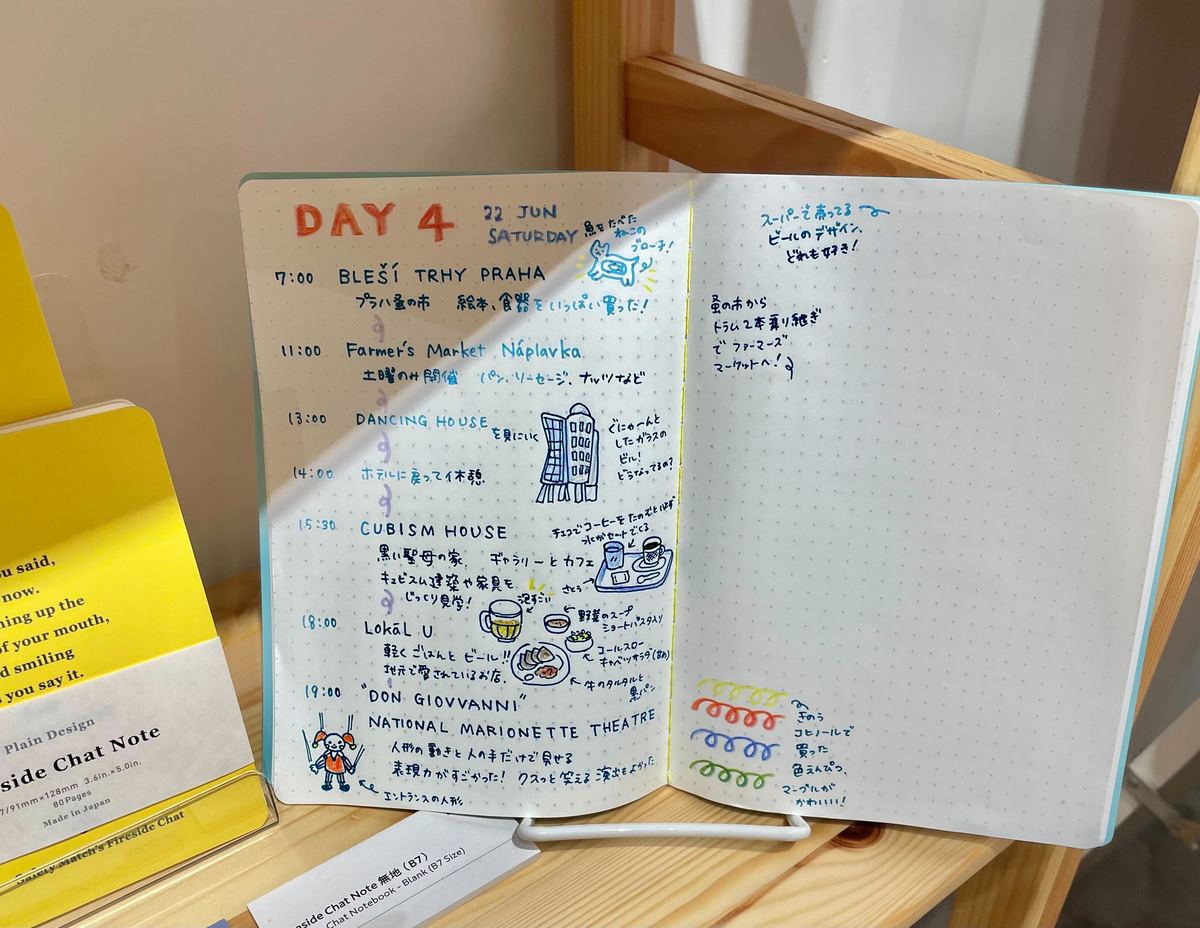 DAY 4
22 JUN
SATURDAY
魚をたべた
ねこの
ブローチ!
7:00 BLEŠÍ TRHY PRAHA
プラハ蚤の市 絵本、食器をいっぱい買った!
11:00 Farmer's Market Náplavka
土曜のみ開催 パン、ソーセージ、ナッツなど
13:00 DANCING HOUSE を見にいく
ぐにゃ〜んと
したガラスの
ビル!
どうなってるの?
14:00 ホテルに戻って休憩。
15:30 CUBISM HOUSE
チェコでコーヒーをたのむといつも
水がセットでくる
黒い聖母の家。ギャラリーとカフェ
キュビスム建築や家具を
じっくり見学!
さとう
18:00 LokáL U
軽くごはんとビール!!
地元で愛されているお店。
泡すごい
野菜のスープ
ショートパスタ入り
コールスロー
キャベツサラダ(甘め)
牛のタルタルと
黒パン
19:00 "DON GIOVVANNI"
NATIONAL MARIONETTE THEATRE
人形の動きと人の手だけで見せる
表現力がすごかった! クスっと笑える演出もよかった
エントランスの人形
スーパーで売ってる
ビールのデザイン、
どれも好き!
蚤の市から
トラム2本乗り継ぎ
でファーマーズ
マーケットへ!
きのう
コヒノールで
買った
色えんぴつ。
マーブルが
かわいい!
u said,
now.
ning up the
of your mouth,
d smiling
s you say it.
Plain Design
side Chat Note
7/91mm×128mm 3.6in.×5.0in.
80 Pages
Made in Japan
Safety Match's Fireside Chat
eside Chat Note 無地 (B7)
Chat Notebook - Blank (B7 Size)